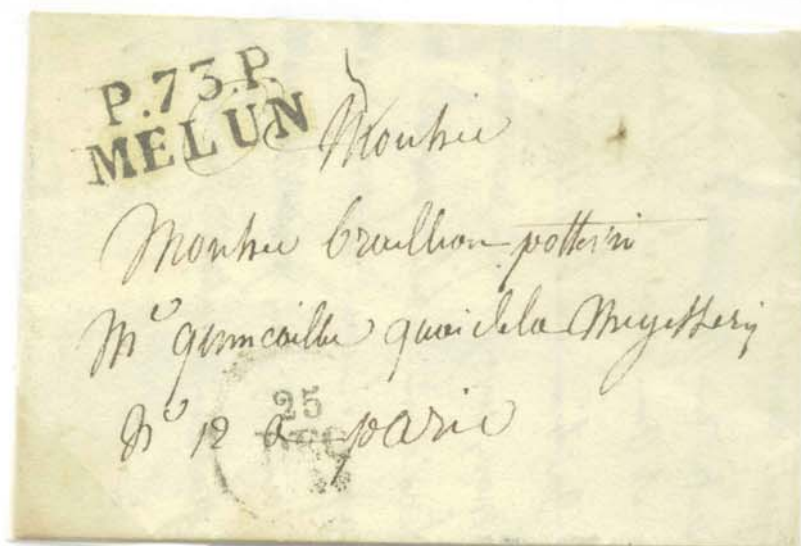 P.73.P
MELUN
Monsieu
Monsieu potterin
Md quincaille quai de la Megesserij
No 12 a paris
25